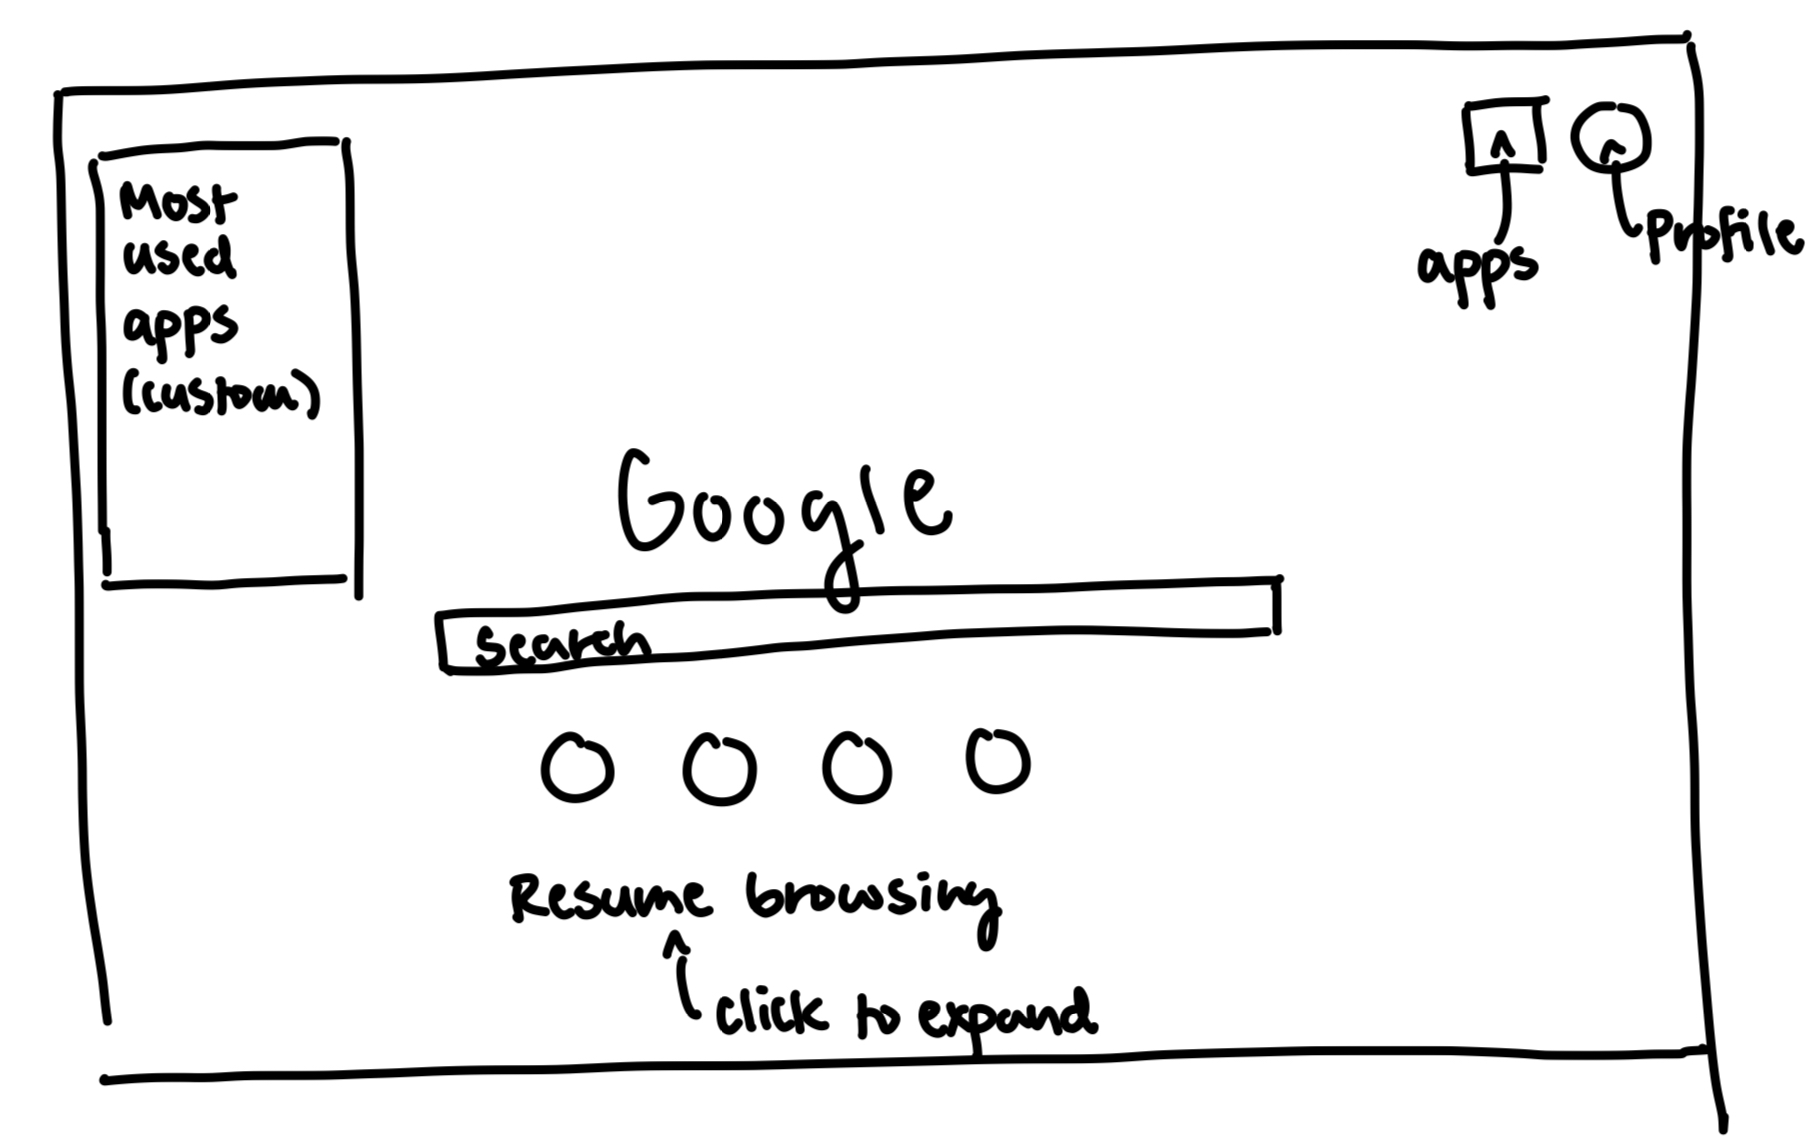 Most
used
apps
(custom)
apps
Profile
Google
search
Resume browsing
click to expand